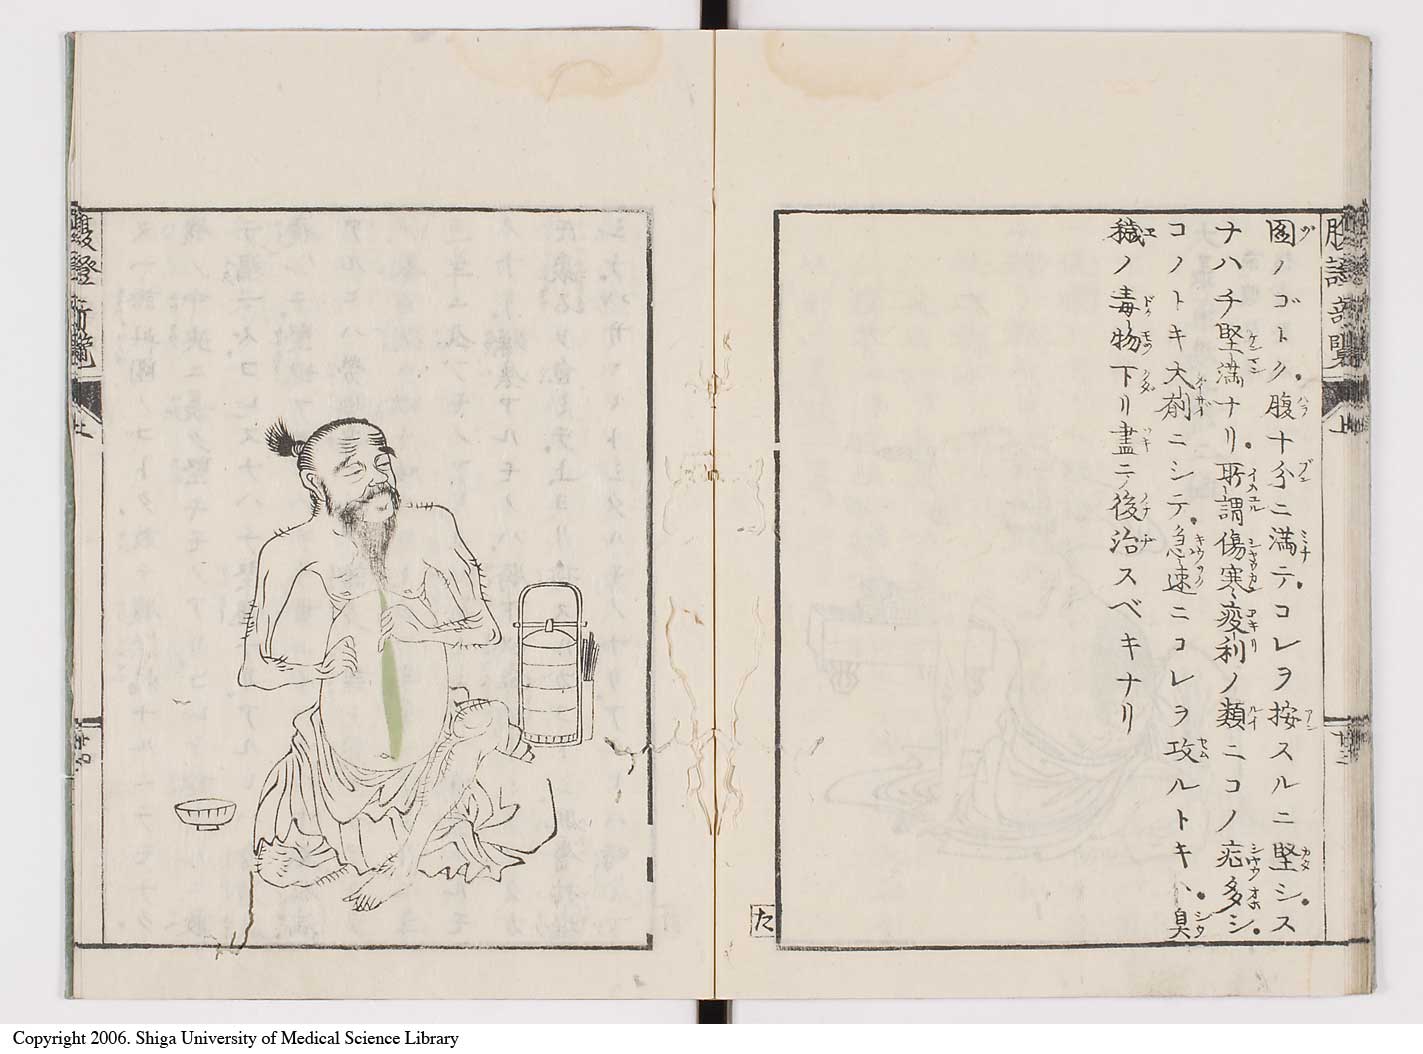 圖ノゴトク。腹十分ニ滿テ。コレヲ按スルニ堅シ。ス
ナハチ堅滿ナリ。所謂傷寒疫利ノ類ニコノ症多シ。
コノトキ大劑ニシテ。急速ニコレヲ攻ルトキハ。臭
穢ノ毒物下リ盡テ後治スベキナリ
た
Copyright 2006. Shiga University of Medical Science Library